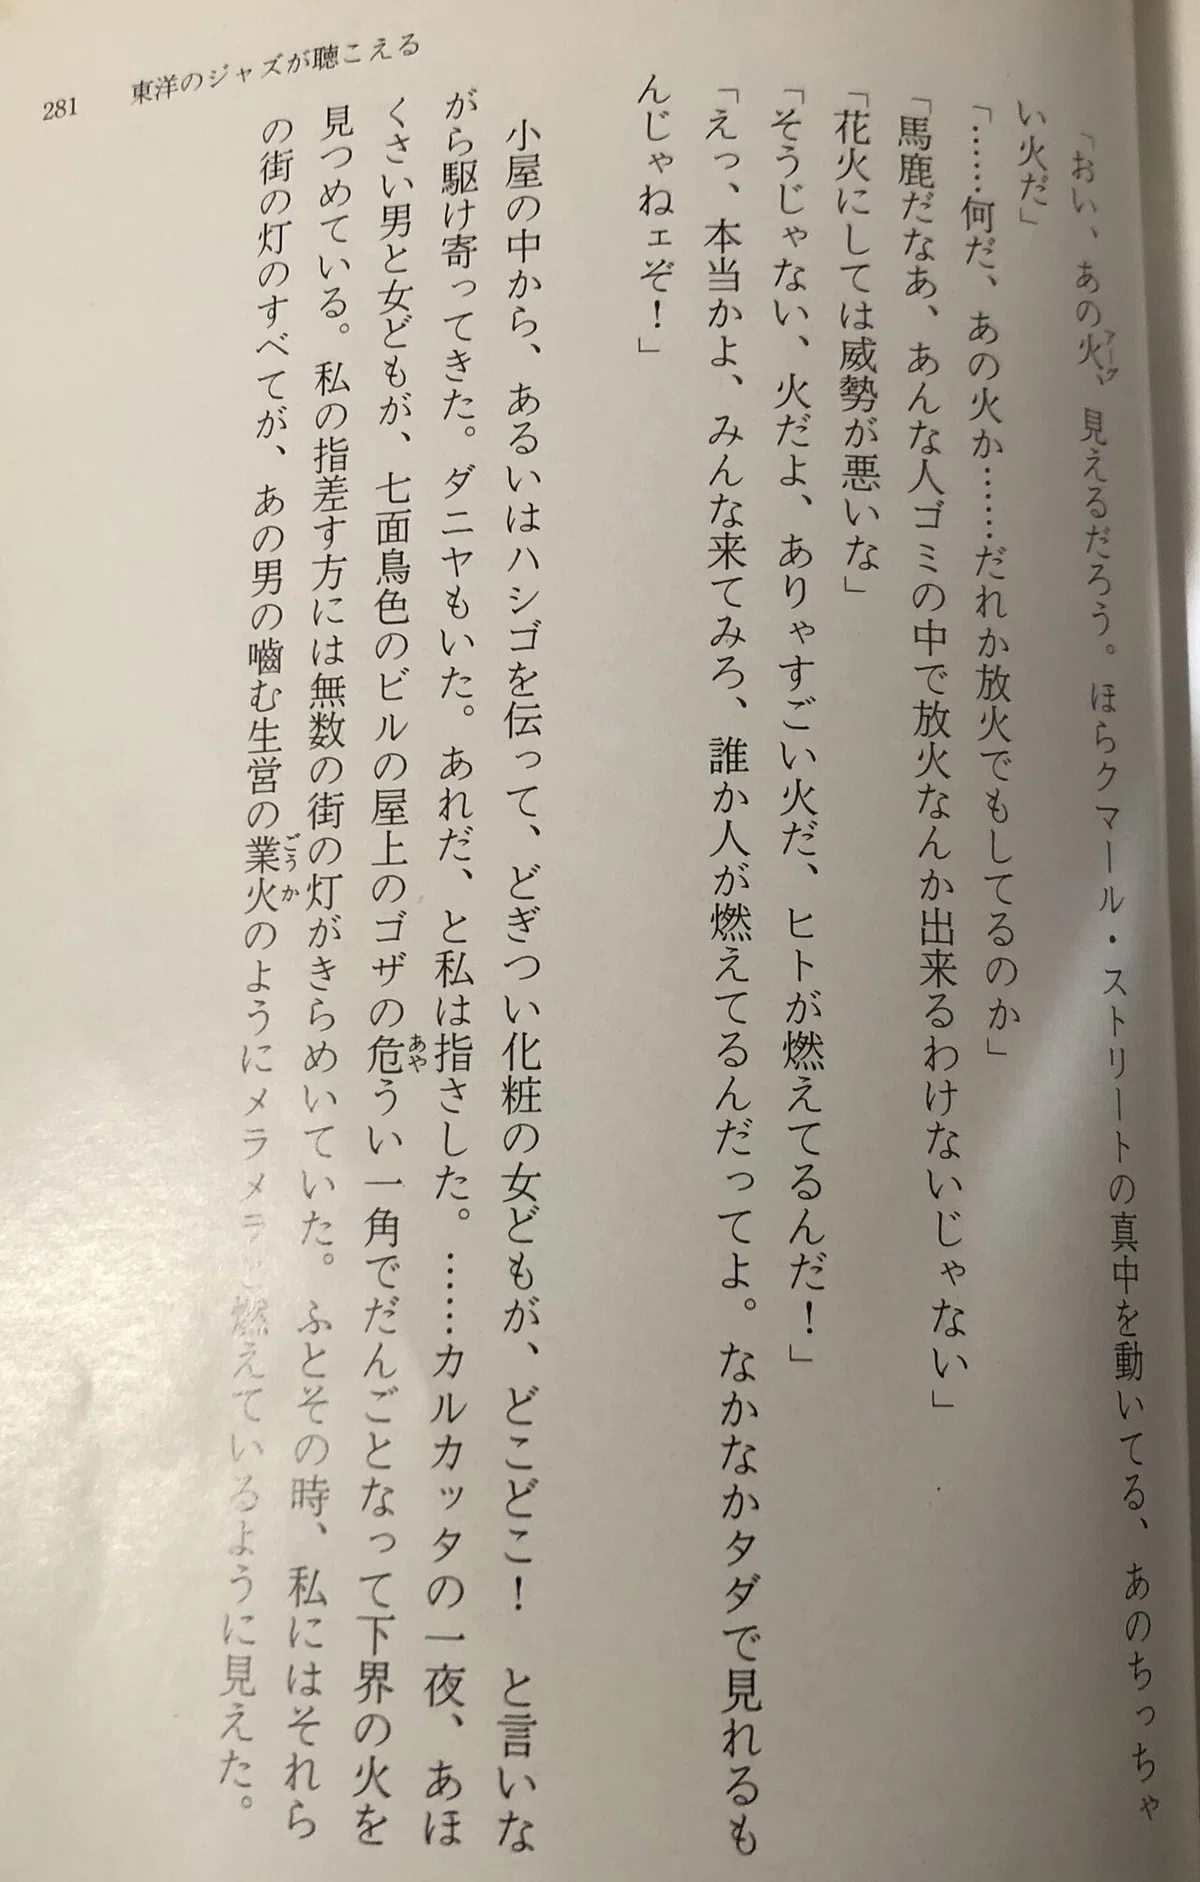 281　東洋のジャズが聴こえる
「おい、あの火、見えるだろう。ほらクマール・ストリートの真中を動いてる、あのちっちゃ
アーグ
い火だ」
「……何だ、あの火か……だれか放火でもしてるのか」
「馬鹿だなあ、あんな人ゴミの中で放火なんか出来るわけないじゃない」
「花火にしては威勢が悪いな」
「そうじゃない、火だよ、ありゃすごい火だ、ヒトが燃えてるんだ！」
「えっ、本当かよ、みんな来てみろ、誰か人が燃えてるんだってよ。なかなかタダで見れるも
んじゃねェぞ！」
小屋の中から、あるいはハシゴを伝って、どぎつい化粧の女どもが、どこどこ！　と言いな
がら駆け寄ってきた。ダニヤもいた。あれだ、と私は指さした。……カルカッタの一夜、あほ
くさい男と女どもが、七面鳥色のビルの屋上のゴザの危うい一角でだんごとなって下界の火を
あや
見つめている。私の指差す方には無数の街の灯がきらめいていた。ふとその時、私にはそれら
の街の灯のすべてが、あの男の嚙む生営の業火のようにメラメラと燃えているように見えた。
ごうか